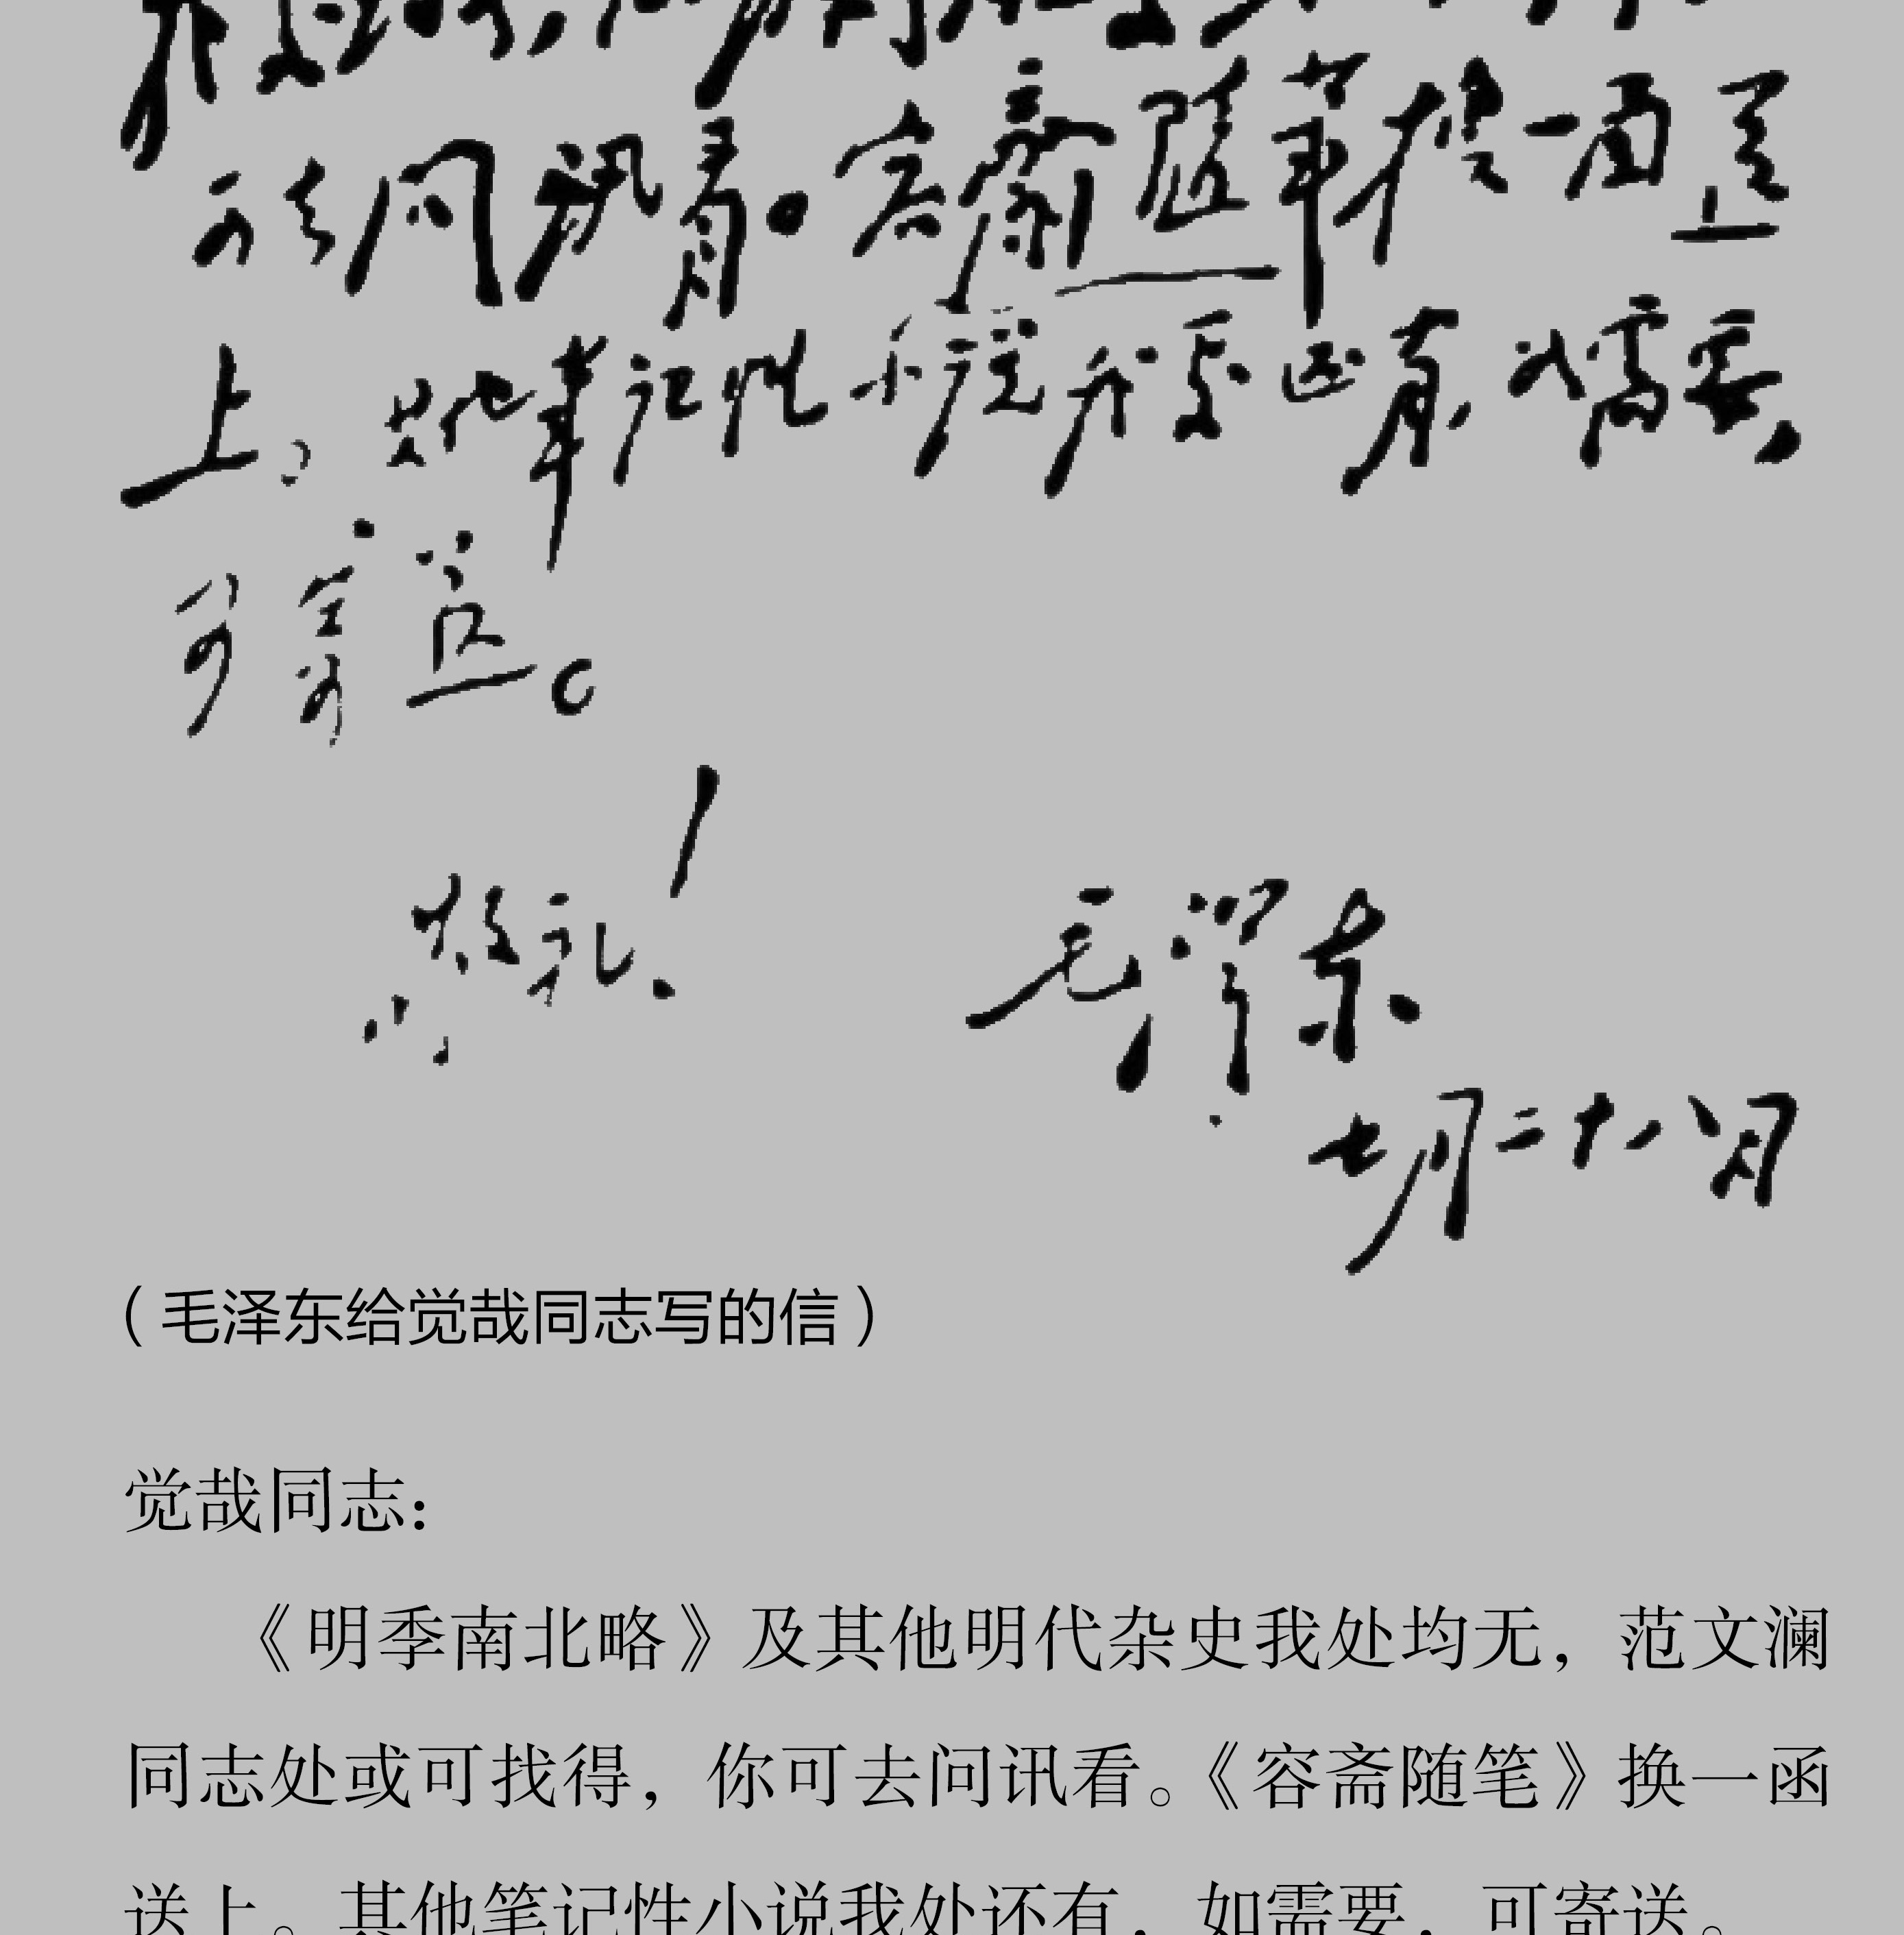 可去问讯看。容斋随笔换一函送
上。其他笔记性小说我处还有,如需要,
可寄送。
敬礼!
毛泽东
七月二十八日
(毛泽东给觉哉同志写的信)
觉哉同志:
《明季南北略》及其他明代杂史我处均无,范文澜
同志处或可找得,你可去问讯看。《容斋随笔》换一函
送上。其他笔记性小说我处还有,如需要,可寄送。